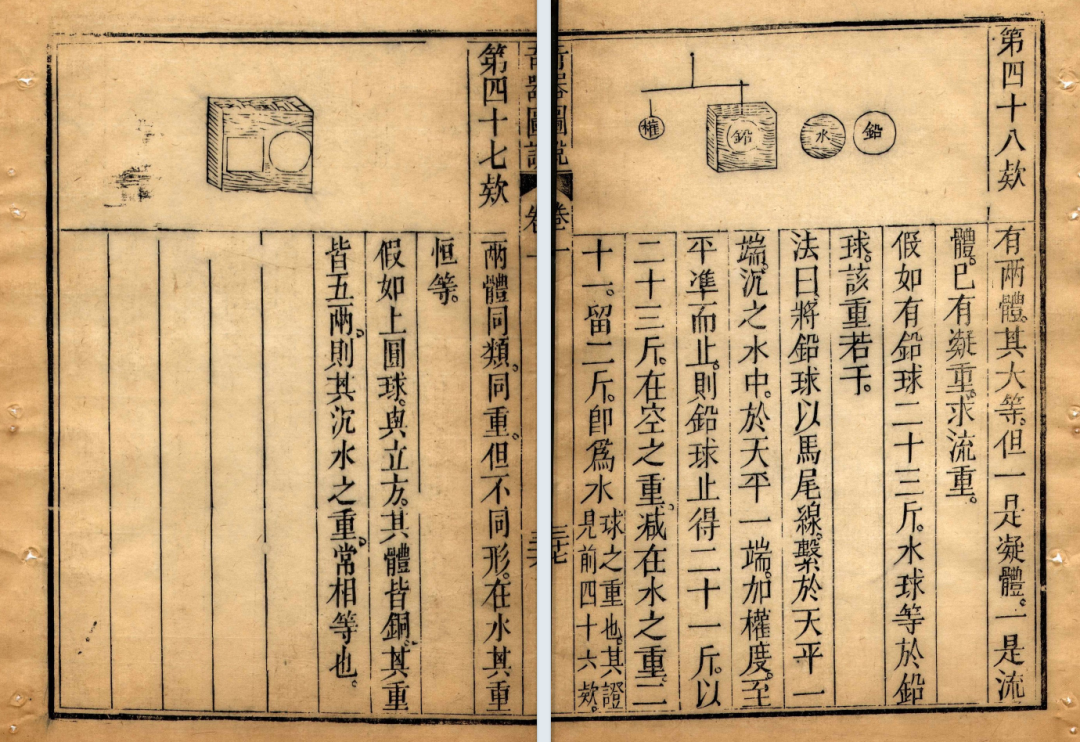 第四十七欵
兩體同類。同重。但不同形。在水其重
恒等。
假如上圓球。與立方。其體皆銅。其重
皆五兩。則其沉水之重。常相等也。
奇器圖說
卷一
三十七
第四十八欵
權
鉛
水
鉛
有兩體。其大等。但一是凝體。一是流
體。已有凝重。求流重。
假如有鉛球二十三斤。水球等於鉛
球。該重若干。
法曰。將鉛球以馬尾線。繫於天平一
端。沉之水中。於天平一端。加權度。至
平準而止。則鉛球止得二十一斤。以
二十三斤。在空之重。減在水之重。二
十一。留二斤。卽爲水
球之重也。其證
見前四十六欵。